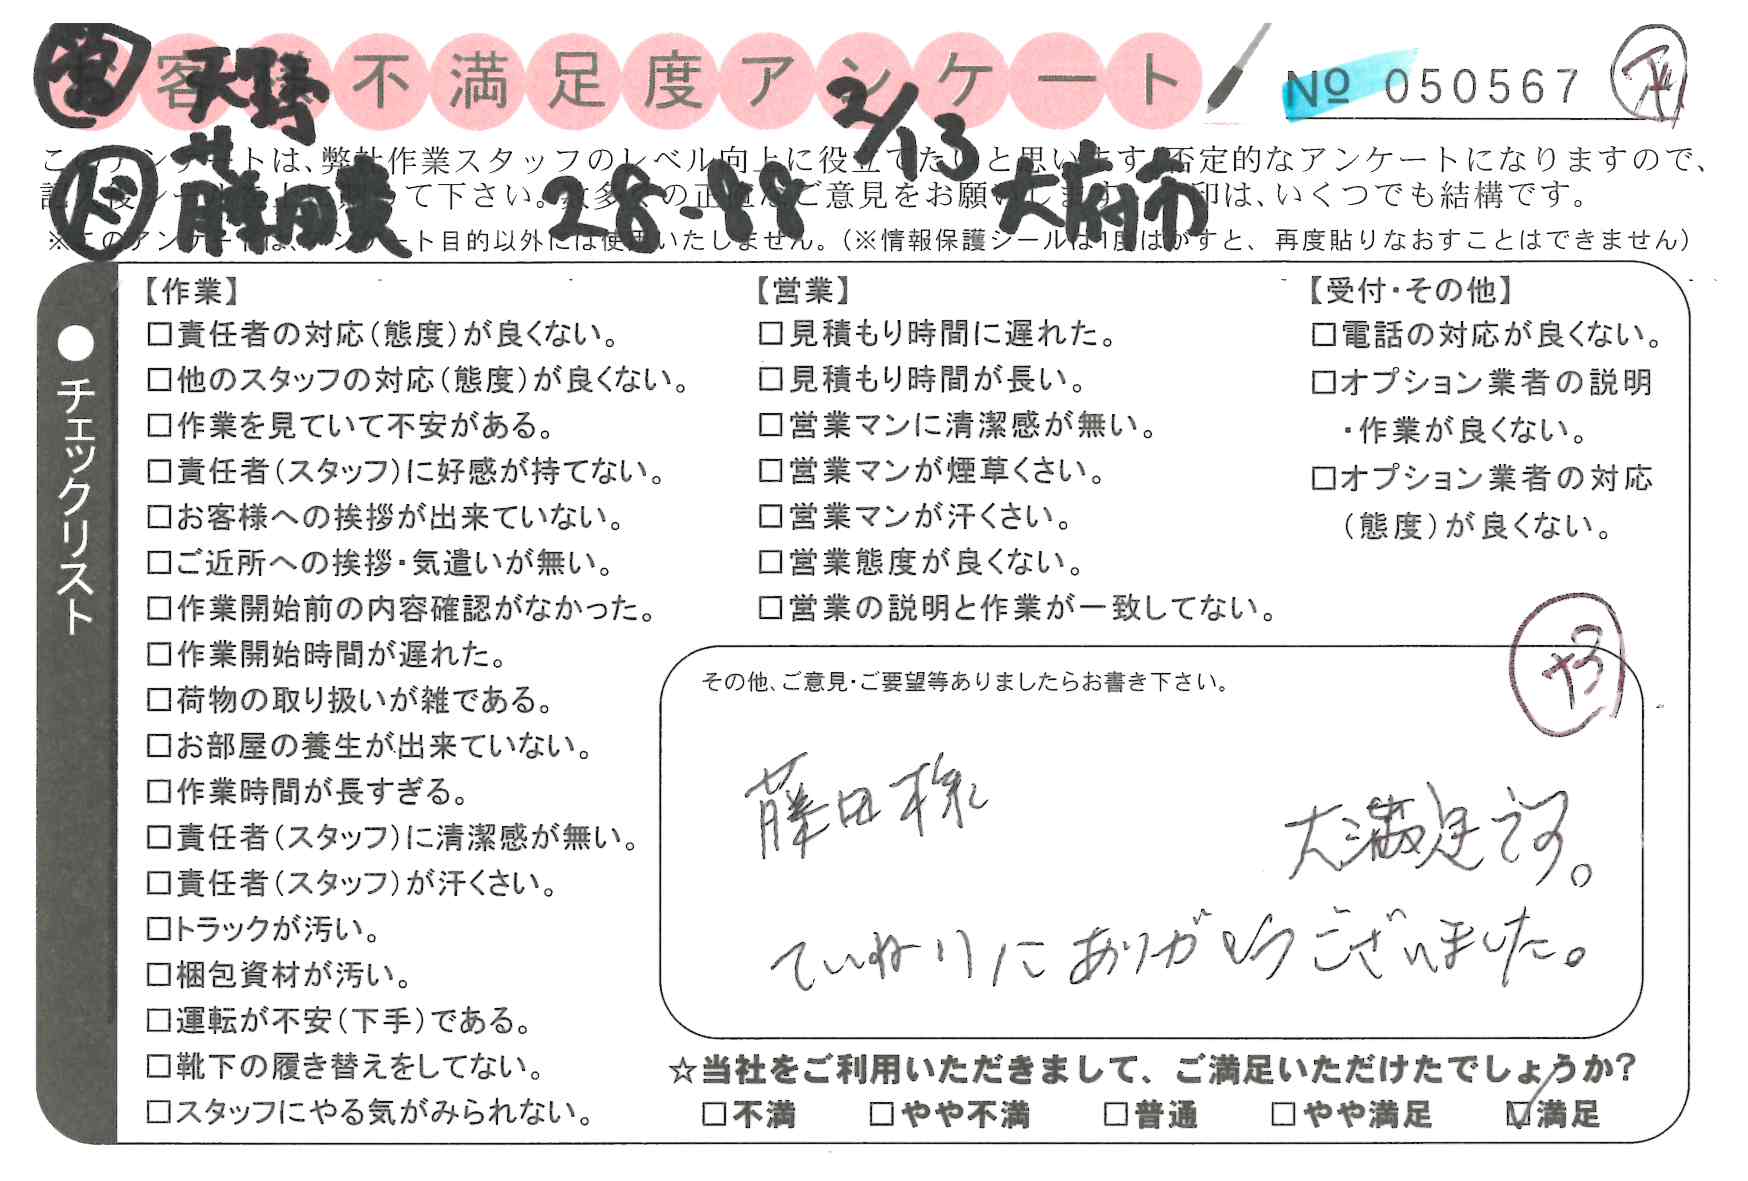 客様不満足度アンケート
No 050567
営 天野
2/13
ド 藤田貴 28-88 大府市
このアンケートは、弊社作業スタッフのレベル向上に役立てたいと思います。否定的なアンケートになりますので、
ご意見をお願いします 印は、いくつでも結構です。
※このアンケートは、アンケート目的以外には使用いたしません。(※情報保護シールは1度はがすと、再度貼りなおすことはできません)
●チェックリスト
【作業】
□責任者の対応(態度)が良くない。
□他のスタッフの対応(態度)が良くない。
□作業を見ていて不安がある。
□責任者(スタッフ)に好感が持てない。
□お客様への挨拶が出来ていない。
□ご近所への挨拶・気遣いが無い。
□作業開始前の内容確認がなかった。
□作業開始時間が遅れた。
□荷物の取り扱いが雑である。
□お部屋の養生が出来ていない。
□作業時間が長すぎる。
□責任者(スタッフ)に清潔感が無い。
□責任者(スタッフ)が汗くさい。
□トラックが汚い。
□梱包資材が汚い。
□運転が不安(下手)である。
□靴下の履き替えをしてない。
□スタッフにやる気がみられない。
【営業】
□見積もり時間に遅れた。
□見積もり時間が長い。
□営業マンに清潔感が無い。
□営業マンが煙草くさい。
□営業マンが汗くさい。
□営業態度が良くない。
□営業の説明と作業が一致してない。
【受付・その他】
□電話の対応が良くない。
□オプション業者の説明
・作業が良くない。
□オプション業者の対応
(態度)が良くない。
その他、ご意見・ご要望等ありましたらお書き下さい。
藤田様
大満足です。
ていねいにありがとうございました。
☆当社をご利用いただきまして、ご満足いただけたでしょうか?
□不満 □やや不満 □普通 □やや満足 ☑満足